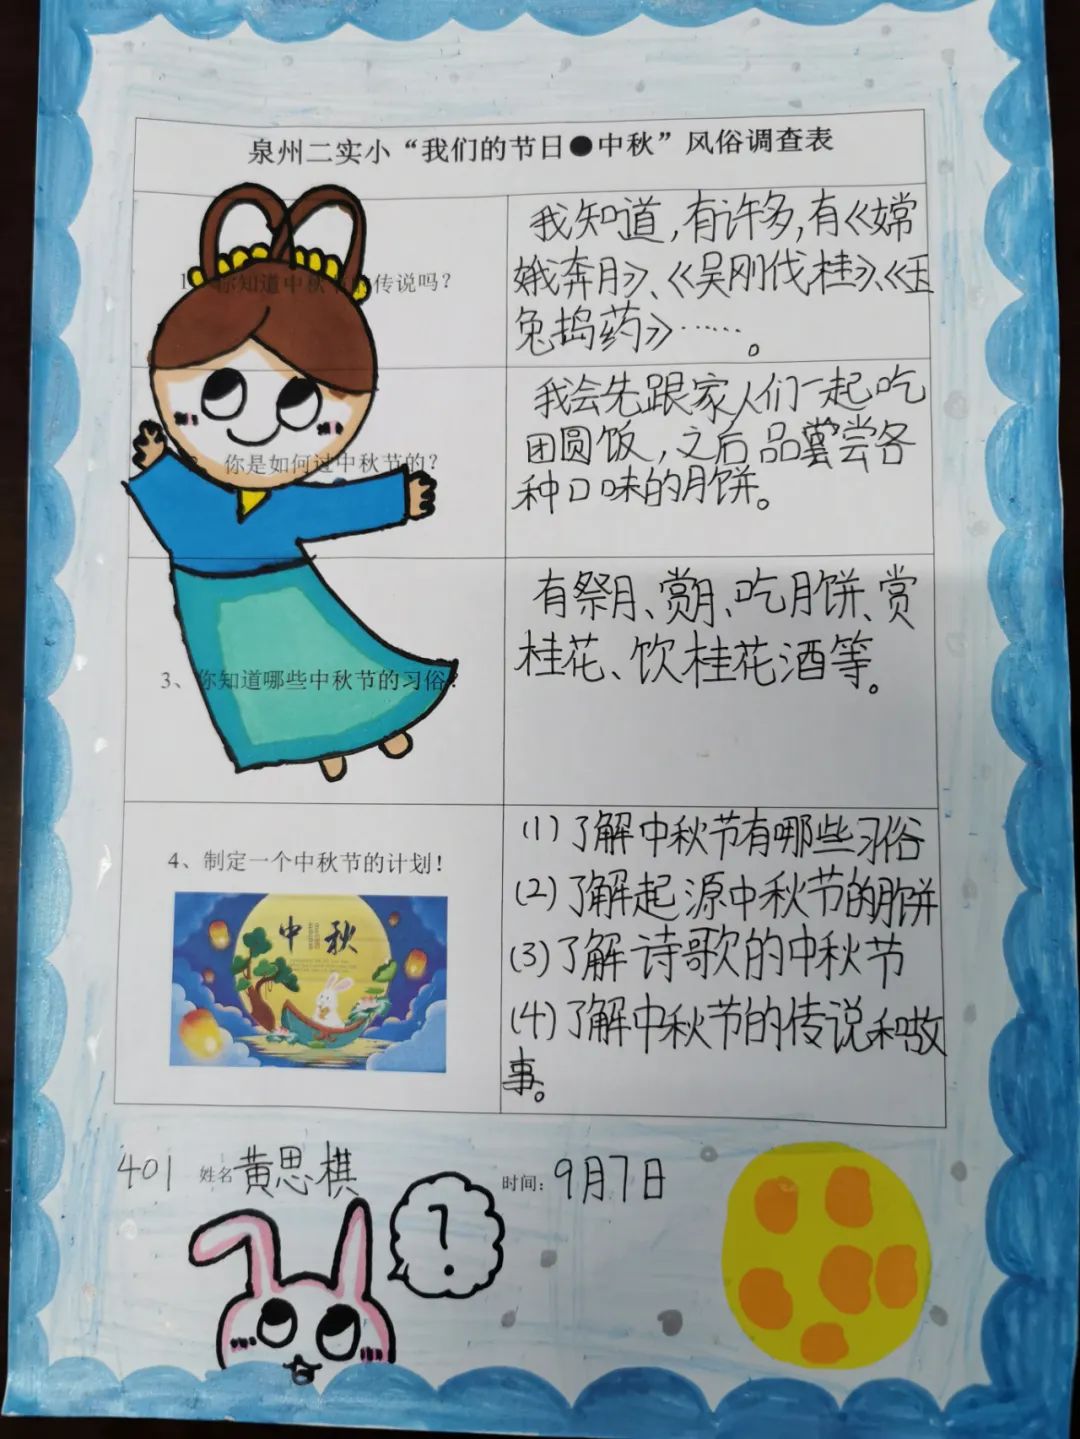 泉州二实小“我们的节日●中秋”风俗调查表
1、你知道中秋节的传说吗？
我知道,有许多,有《嫦
娥奔月》、《吴刚伐桂》、《玉
兔捣药》……。
你是如何过中秋节的？
我会先跟家人们一起吃
团圆饭,之后品尝各
种口味的月饼。
3、你知道哪些中秋节的习俗？
有祭月、赏月、吃月饼、赏
桂花、饮桂花酒等。
4、制定一个中秋节的计划！
中秋
(1)了解中秋节有哪些习俗
(2)了解起源中秋节的月饼
(3)了解诗歌的中秋节
(4)了解中秋节的传说和故
事。
401 姓名 黄思棋 时间：9月7日
?